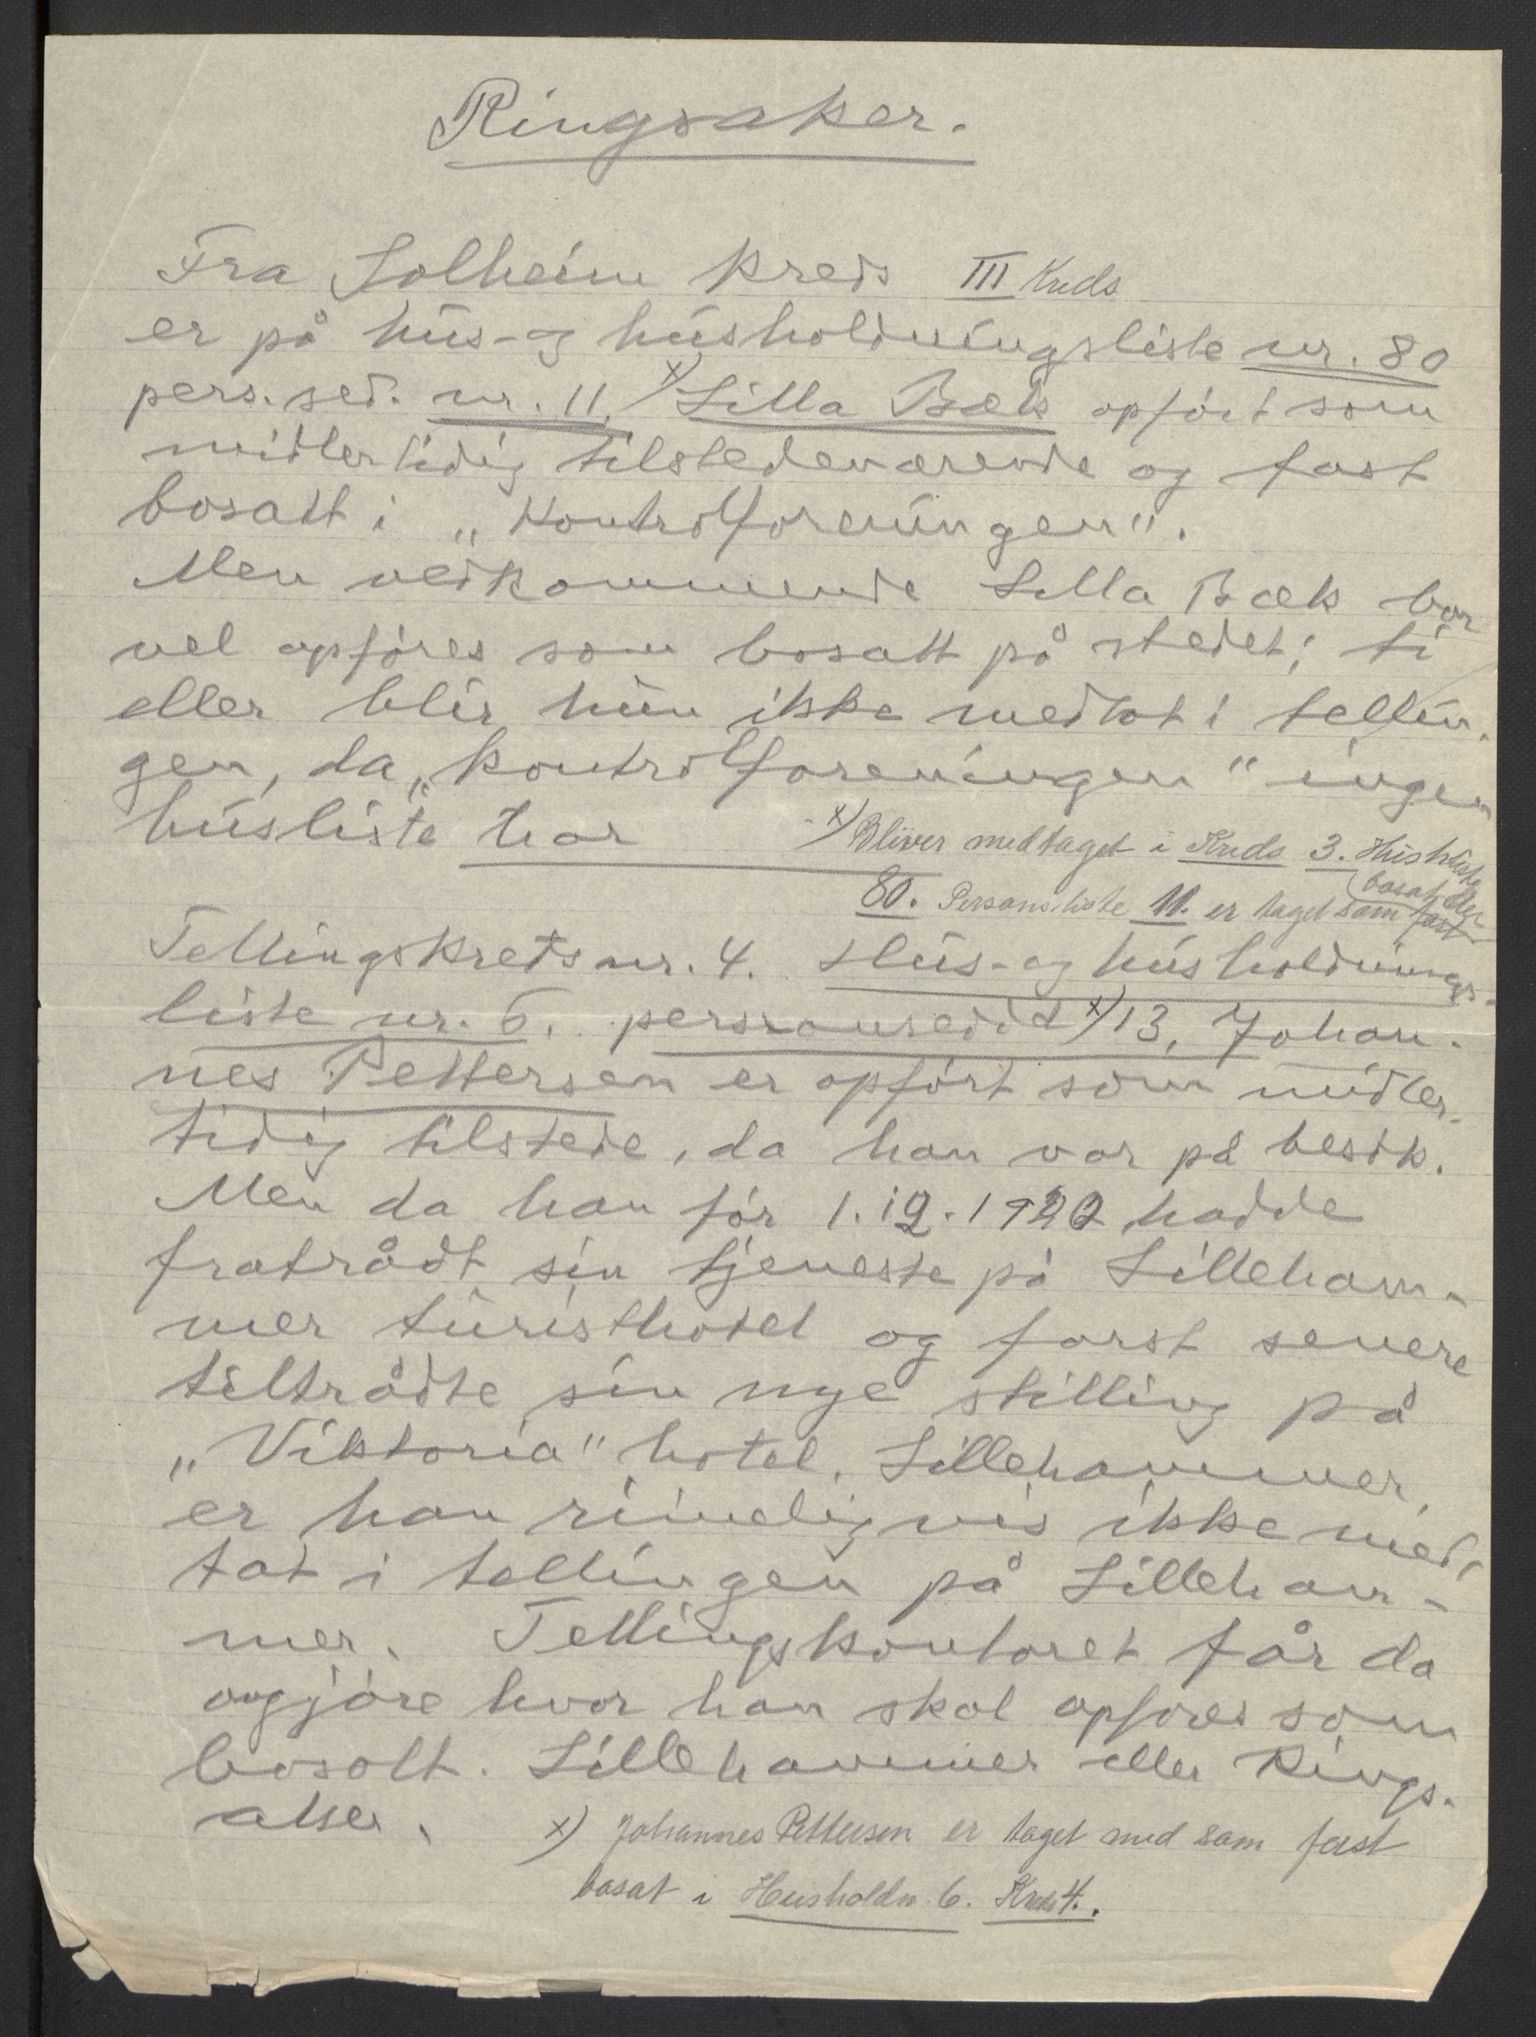 Ringsaker.
Fra Solheim kreds III Kreds
er på hus- og husholdningsliste nr. 80
pers. sed. nr. 11, x) Lilla Bæk opført som
midlertidig tilstedeværende og fast
bosatt i „Kontrolforeningen".
Men vedkommende Lilla Bæk bør
vel opføres som bosatt på stedet; ti
eller blir hun ikke medtat i tellin-
gen, da „kontrolforeningen" ingen
husliste har
x) Bliver medtaget i Kreds 3. Husliste
80. Personsliste 11. er taget som fast
bosat der
Tellingskrets nr. 4. Hus- og husholdnings-
liste nr. 6, personseddel x) 13, Johan-
nes Pettersen er opført som midler-
tidig tilstede, da han var på besøk.
Men da han før 1.12.1920 hadde
fratrådt sin tjeneste på Lilleham-
mer turisthotel og først senere
tiltrådte sin nye stilling på
„Viktoria" hotel, Lillehammer,
er han rimeligvis ikke med-
tat i tellingen på Lilleham-
mer. Tellingskontoret får da
avgjøre hvor han skal opføres som
bosatt. Lillehammer eller Rings-
aker.
x) Johannes Pettersen er taget med som fast
bosat i Husholdn 6. Kreds 4.